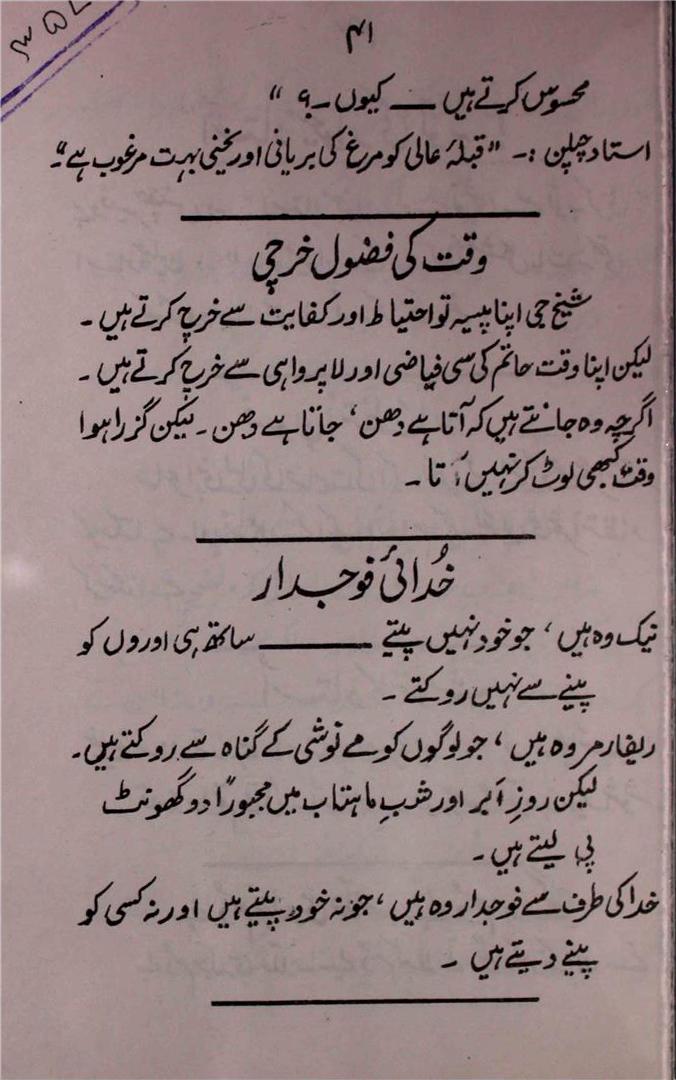 ۴۱
محسوس کرتے ہیں — کیوں۔؟ "
استاد چپلن :۔ "قبلۂ عالی کو مرغ کی بریانی اور یخنی بہت مرغوب ہے"۔
وقت کی فضول خرچی
شیخ جی اپنا پیسہ تو احتیاط اور کفایت سے خرچ کرتے ہیں۔
لیکن اپنا وقت حاتم کی سی فیاضی اور لاپرواہی سے خرچ کرتے ہیں۔
اگرچہ وہ جانتے ہیں کہ آتا ہے دھن، جاتا ہے دھن۔ لیکن گزرا ہوا
وقت کبھی لوٹ کر نہیں آتا۔
خُدائی فوجدار
نیک وہ ہیں، جو خود نہیں پیتے ——— ساتھ ہی اوروں کو
پینے سے نہیں روکتے۔
ریفارمر وہ ہیں، جو لوگوں کو مے نوشی کے گناہ سے روکتے ہیں۔
لیکن روزِ اَبر اور شبِ ماہتاب میں مجبوراً دو گھونٹ
پی لیتے ہیں۔
خدا کی طرف سے فوجدار وہ ہیں، جو نہ خود پیتے ہیں اور نہ کسی کو
پینے دیتے ہیں۔